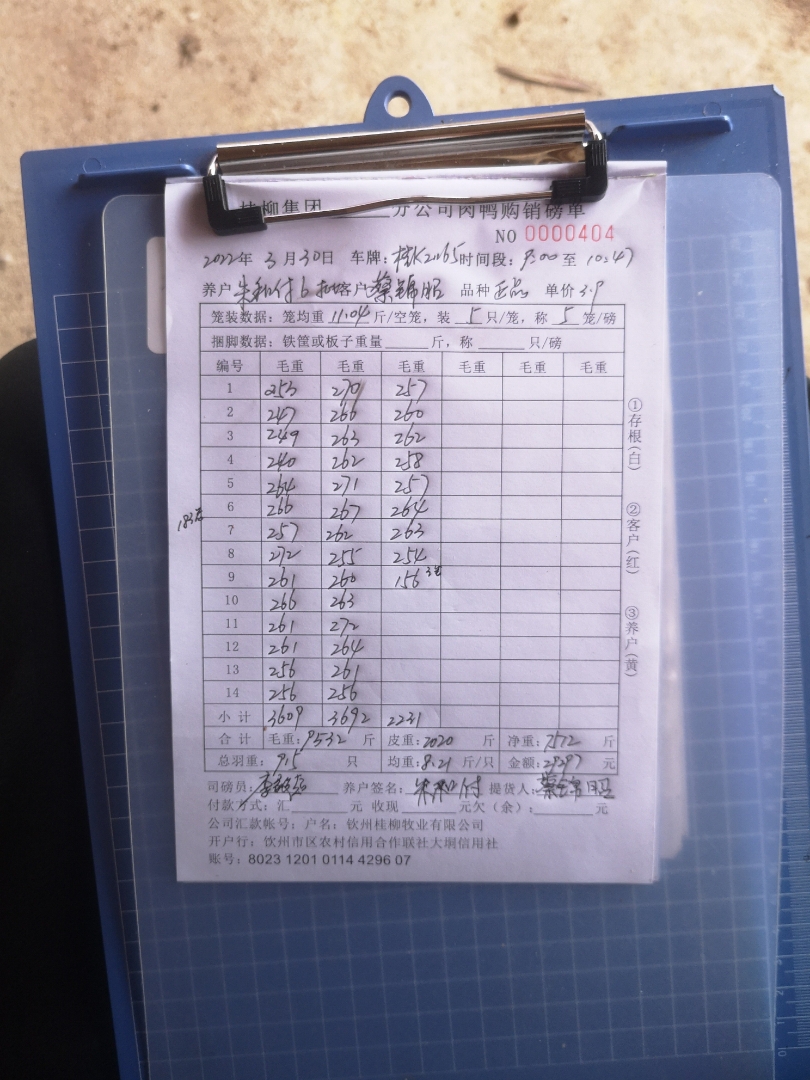 桂柳集团____分公司肉鸭购销磅单
NO 0000404
2022年 3月30日 车牌:桂K21165 时间段:9:00至10:47
养户 朱和付6批 客户 蔡锦昭 品种 正品 单价 3.9
笼装数据:笼均重 11.04 斤/空笼,装 5 只/笼,称 5 笼/磅
捆脚数据:铁筐或板子重量____斤,称____只/磅
编号 毛重 毛重 毛重 毛重 毛重 毛重
1 253 270 257
2 247 266 260
3 249 263 262
4 240 262 258
5 264 271 257
6 266 267 264
7 257 262 263
8 272 255 254
9 261 260 156 3笼
10 266 263
11 261 272
12 261 264
13 256 261
14 256 256
小计 3609 3692 2231
合计 毛重:9532 斤 皮重:2020 斤 净重:7512 斤
总羽重:915 只 均重:8.21 斤/只 金额:29297 元
司磅员: 养户签名:朱和付 提货人:蔡锦昭
付款方式:汇____元 收现____元欠(余):____元
公司汇款帐号:户名:钦州桂柳牧业有限公司
开户行:钦州市区农村信用合作联社大垌信用社
账号:8023 1201 0114 4296 07
183笼
①存根(白)
②客户(红)
③养户(黄)